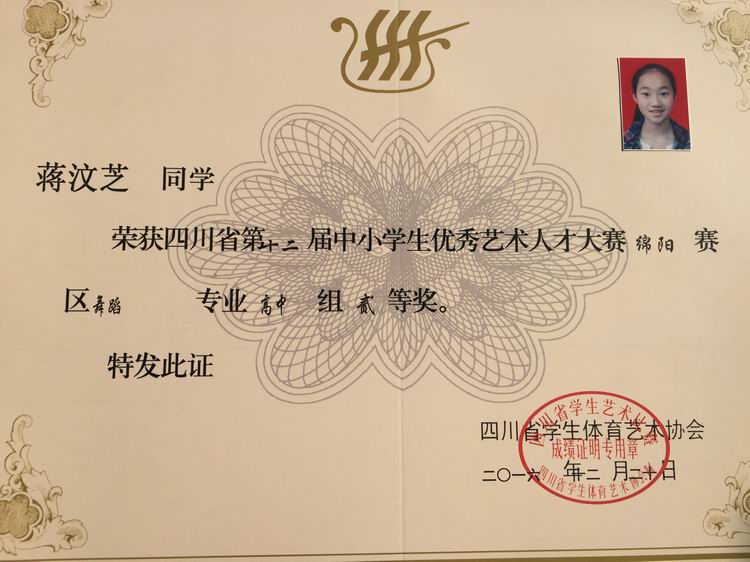 蒋汶芝 同学
荣获四川省第十二届中小学生优秀艺术人才大赛 绵阳 赛
区 舞蹈 专业 高中 组 贰 等奖。
特发此证
四川省学生体育艺术协会
二〇一六 年 十二 月 二十 日
成绩证明专用章